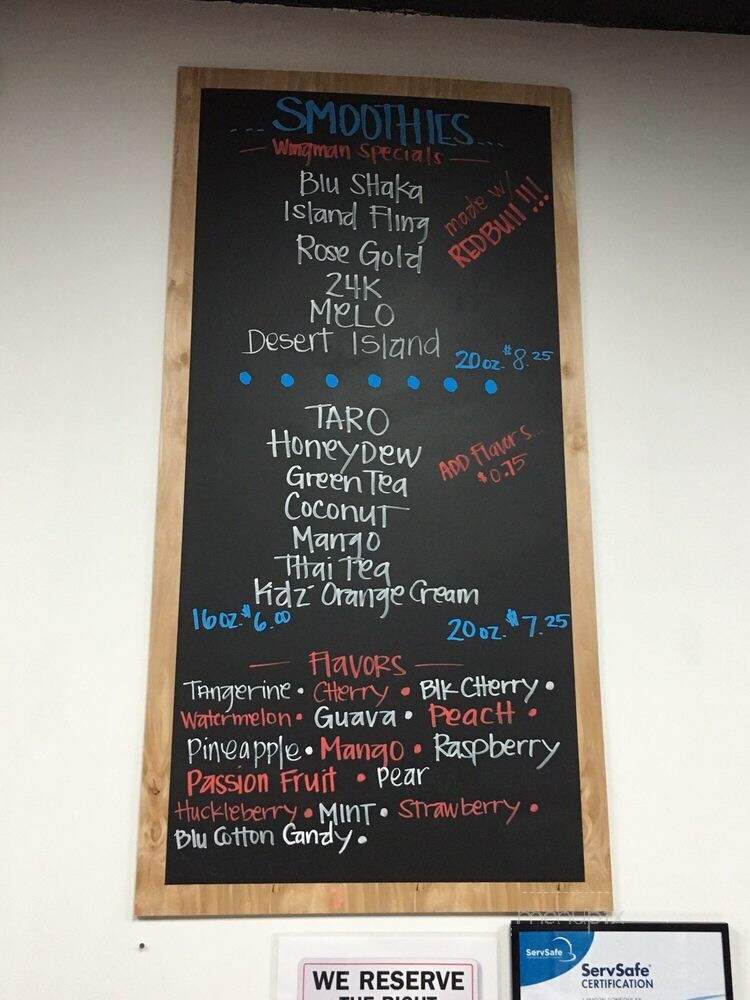 ...SMOOTHIES...
— Wingman Specials —
Blu SHaka
Island Fling
made w/
REDBull!!!
Rose Gold
24K
MeLO
Desert Island
20oz. $8.25
TARO
HoneyDew
ADD Flavors...
$0.75
Green Tea
Coconut
Mango
THai Tea
Kidz Orange Cream
16oz. $6.00
20oz. $7.25
— Flavors —
Tangerine • CHerry • Blk CHerry •
Watermelon • Guava • Peach •
Pineapple • Mango • Raspberry
Passion Fruit • Pear
Huckleberry • MINT • Strawberry •
Blu Cotton Candy •
menupix
WE RESERVE
THE RIGHT
ServSafe
ServSafe®
CERTIFICATION